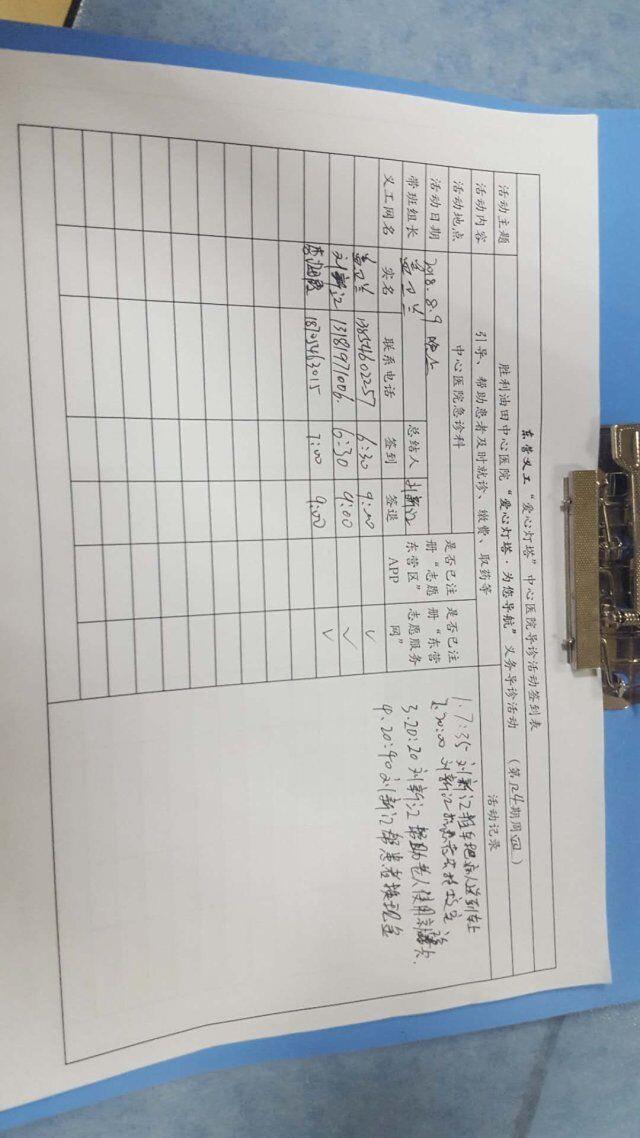 东营义工“爱心灯塔”中心医院导诊活动签到表
活动主题 胜利油田中心医院“爱心灯塔·为您导航”义务导诊活动 (第124期周四)
活动内容 引导、帮助患者及时就诊、缴费、取药等 活动记录
活动地点 中心医院急诊科
活动日期 2018.8.9 晚上
带班组长 总结人 刘新江
义工网名 实名 联系电话 签到 签退 是否已注册“志愿东营区”APP 是否已注册“东营志愿服务网”
13854602257 6:30 9:00 ✓
刘新江 13181971006 6:30 9:00 ✓
18705463015 7:00 9:00 ✓
1.7:35 刘新江推车把病人送到车上
2.20:00 刘新江
3.20:20 刘新江 帮助老人使用 卡.
4.20:40 刘新江帮患者换现金